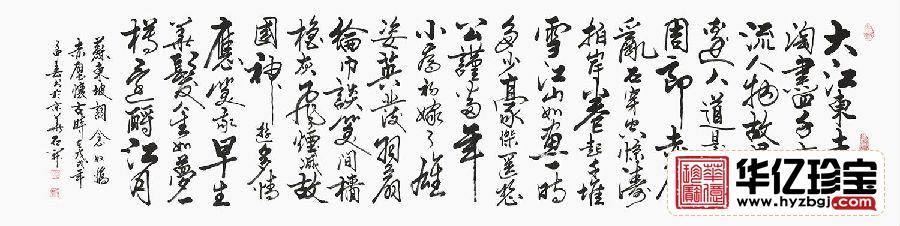 大江東去
淘盡
流人物故
邊人道是
周郎赤
亂石穿空驚濤
拍岸卷起千堆
雪江山如畫一時
多少豪傑遥想
公瑾當年
小喬初嫁了雄
姿英發羽扇
綸巾談笑間檣
櫓灰飛煙滅故
國神遊多情
應笑我早生
華髮人生如夢一
樽還酹江月
蘇東坡詞念奴嬌
赤壁懷古時
於京華
华亿珍宝
www.hyzbgj.com